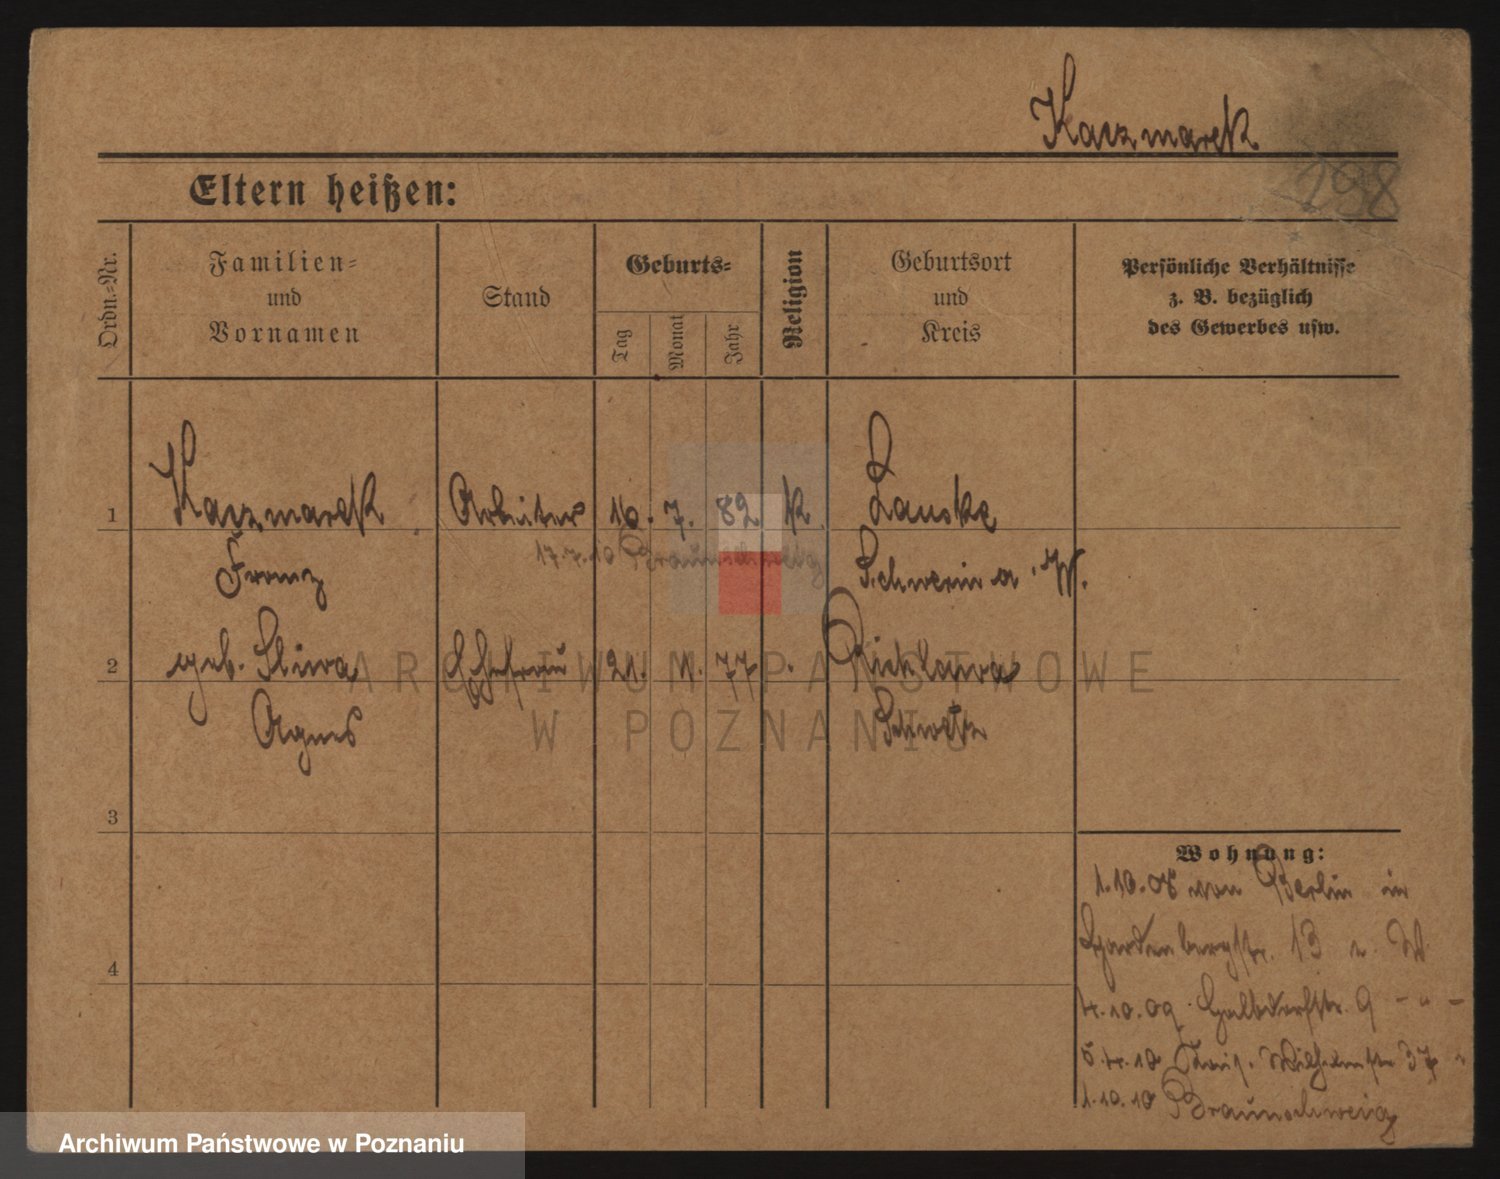 Kaczmarek
198
Eltern heißen:
Ordn.-Nr.
Familien-
und
Vornamen
Stand
Geburts-
Tag
Monat
Jahr
Religion
Geburtsort
und
Kreis
Persönliche Verhältnisse
z. B. bezüglich
des Gewerbes usw.
1 Kaczmarek Arbeiter 16. 7. 82 K. Lauske
17.7.10 Braunschweig
Franz Schwerin a. W.
2 geb. Sliwa Ehefrau 21. 1. 77
Agnes Schwetz
3
4
Wohnung:
1.10.08 von Berlin in
Gardenbergstr. 13 W
4.10.09 Halbdorfstr. 9 – " –
5.4.10 Kais. Wilhelmstr 37
1.10.10 Braunschweig
ARCHIWUM PAŃSTWOWE
W POZNANIU
Archiwum Państwowe w Poznaniu